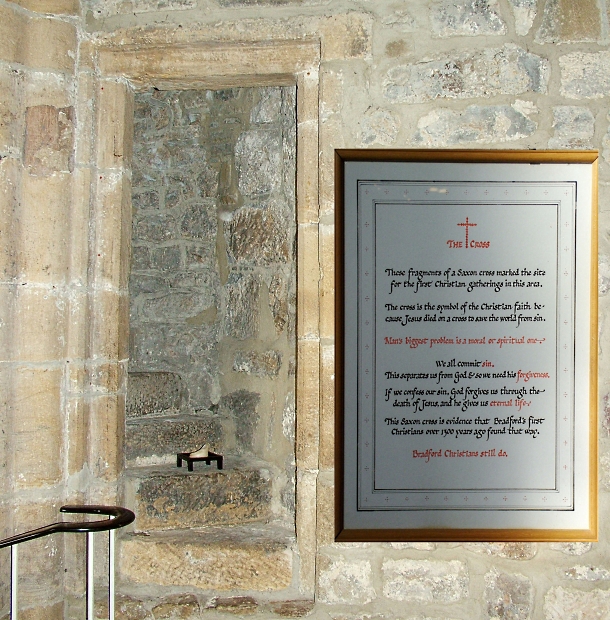 The Cross
These fragments of a Saxon cross marked the site
for the first Christian gatherings in this area.
The cross is the symbol of the Christian faith be-
cause Jesus died on a cross to save the world from sin.
Man's biggest problem is a moral or spiritual one
We all commit sin.
This separates us from God & so we need his forgiveness.
If we confess our sin, God forgives us through the
death of Jesus, and he gives us eternal life
This Saxon cross is evidence that Bradford's first
Christians over 1300 years ago found that way.
Bradford Christians still do.